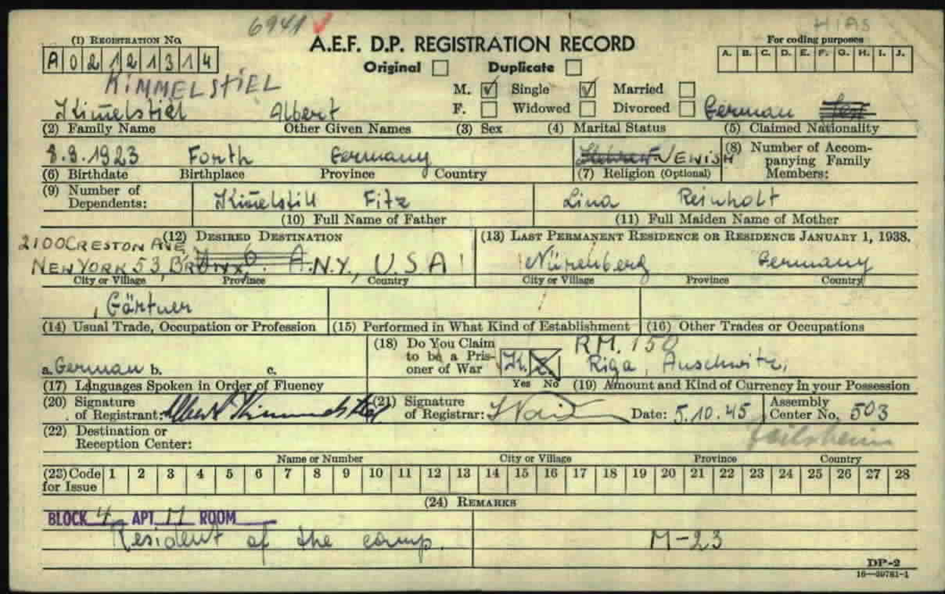 6941 ✓ HIAS
(1) REGISTRATION NO. A.E.F. D.P. REGISTRATION RECORD For coding purposes
A 0 2 1 2 1 3 1 4 Original ☐ Duplicate ☐ A. B. C. D. E. F. G. H. I. J.
KIMMELSTIEL M. ☑ Single ☑ Married ☐
Kimelstiel Albert F. ☐ Widowed ☐ Divorced ☐ German
(2) Family Name Other Given Names (3) Sex (4) Marital Status (5) Claimed Nationality
8.8.1923 Forth Germany JEWISH (8) Number of Accom-
panying Family
Members:
(6) Birthdate Birthplace Province Country (7) Religion (Optional)
(9) Number of
Dependents: Kimelstill Fitz Lina Reinholt
(10) Full Name of Father (11) Full Maiden Name of Mother
(12) DESIRED DESTINATION (13) LAST PERMANENT RESIDENCE OR RESIDENCE JANUARY 1, 1938.
2100 CRESTON AVE
NEW YORK 53, BRONX, N.Y., U.S.A Nürenberg Germany
City or Village Province Country City or Village Province Country
Gärtner
(14) Usual Trade, Occupation or Profession (15) Performed in What Kind of Establishment (16) Other Trades or Occupations
a. German b. c. (18) Do You Claim
to be a Pris-
oner of War K.Z. RM. 150
Riga, Auschwitz,
(17) Languages Spoken in Order of Fluency Yes No (19) Amount and Kind of Currency in your Possession
(20) Signature
of Registrant: Albert Kimmelstiel (21) Signature
of Registrar: Date: 5.10.45 Assembly
Center No. 503
(22) Destination or
Reception Center: Zeilsheim
Name or Number City or Village Province Country
(23) Code
for Issue 1 2 3 4 5 6 7 8 9 10 11 12 13 14 15 16 17 18 19 20 21 22 23 24 25 26 27 28
(24) REMARKS
BLOCK 4 APT M ROOM
Resident of the camp. M-23
DP-2
16—39781-1